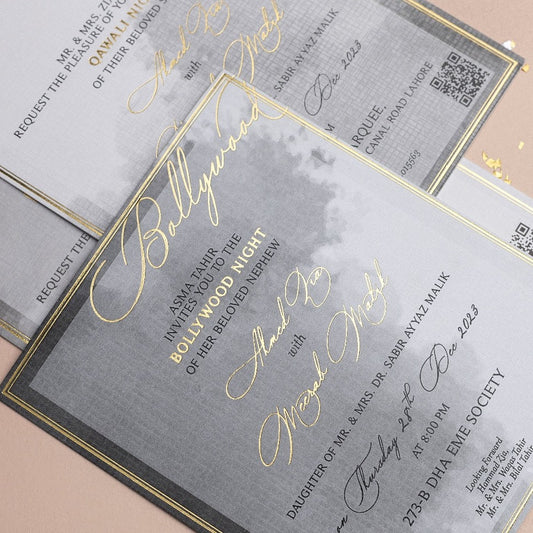 Bollywood
ASMA TAHIR
INVITES YOU TO THE
BOLLYWOOD NIGHT
OF HER BELOVED NEPHEW
Ahmed Zia
with
Meerab Malik
DAUGHTER OF MR. & MRS. DR. SABIR AYYAZ MALIK
on Thursday 28th Dec 2023
AT 8:00 PM
273-B DHA EME SOCIETY
Looking Forward
Hammad Zia,
Mr. & Mrs. Waqas Tahir
Mr. & Mrs. Bilal Tahir
MR. & MRS. ZI
REQUEST THE PLEASURE OF Y
QAWALI NI
OF THEIR BELOVED S
Ahmed Zia
with
Malik
SABIR AYYAZ MALIK
Dec 2023
ARQUEE,
CANAL ROAD LAHORE
015563
REQUEST THE